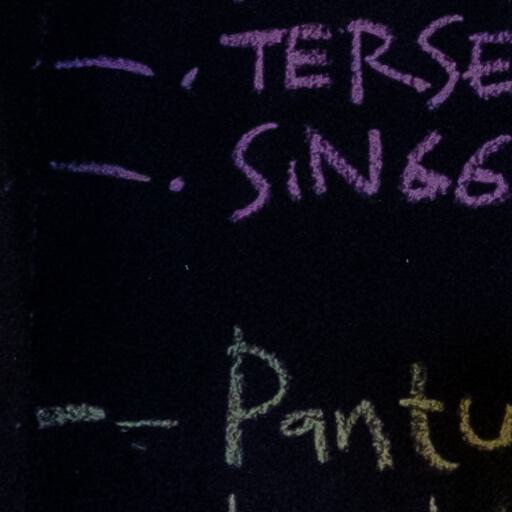 TERSE
SiNGG
Pantu